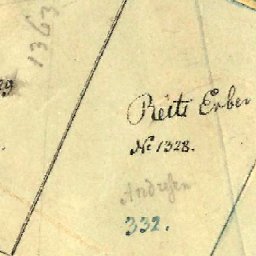 1363
Reits Erben
№ 1328.
Andresen
332.